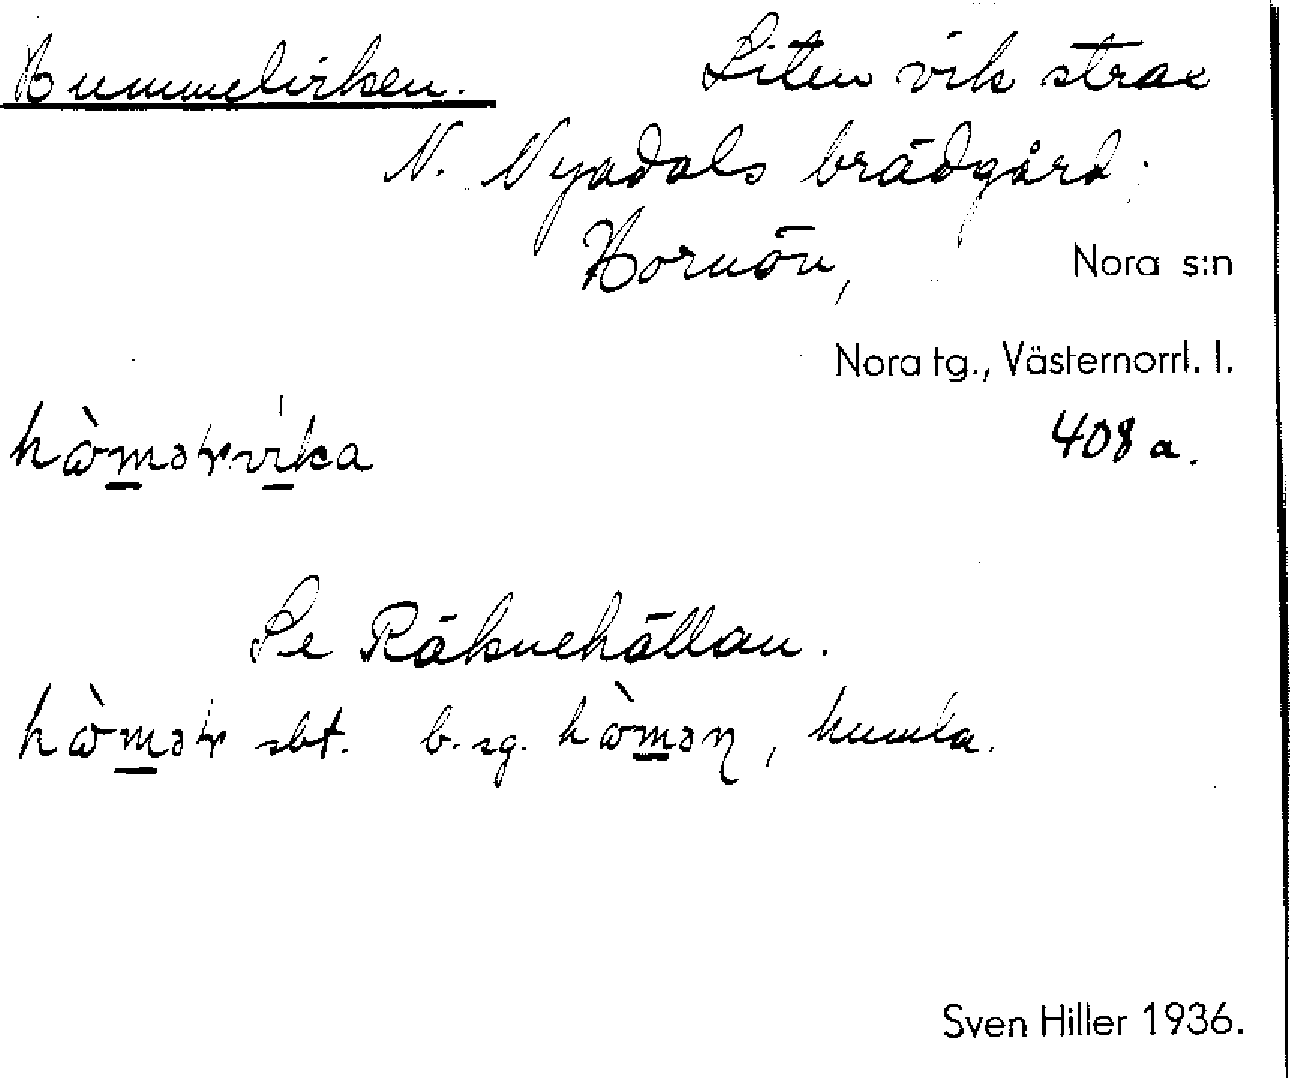 Hummelviken. Liten vik strax
N. Nyadals brädgård,
Hornön, Nora s:n
Nora tg., Västernorrl. l.
408 a.
Se Räknehällan.
sbt. b. sg. humla.
Sven Hiller 1936.